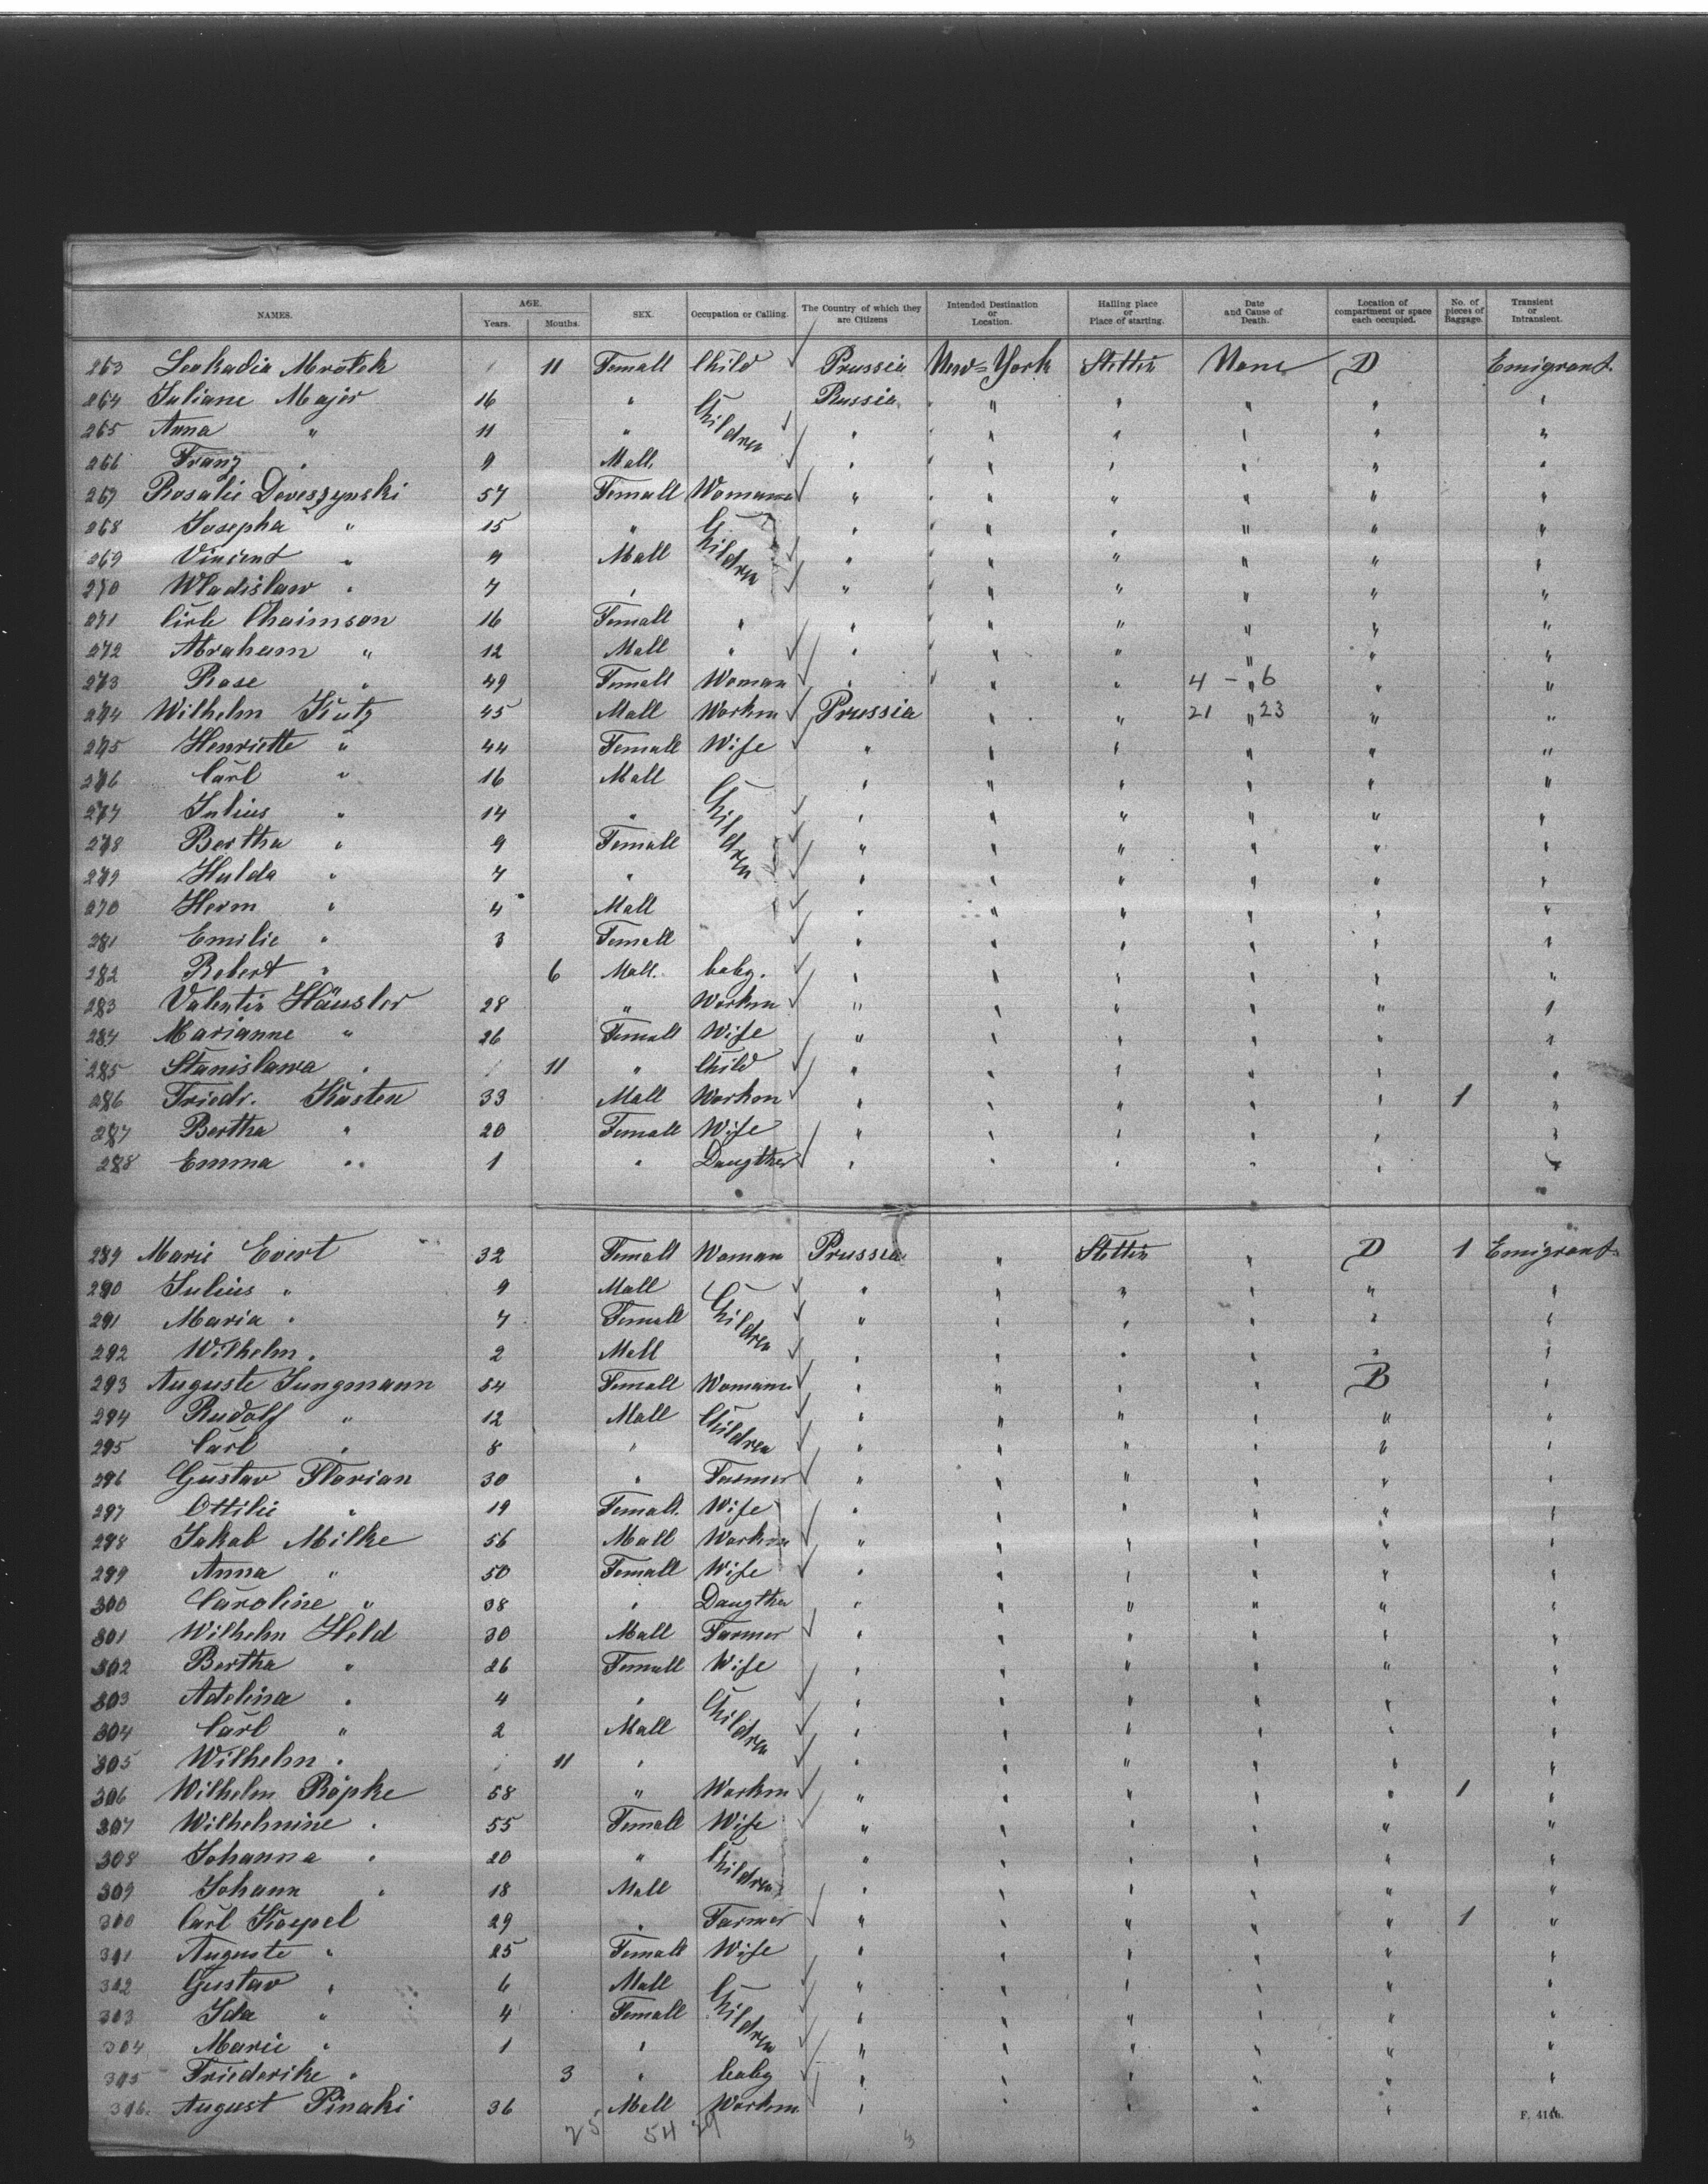 NAMES. AGE. Years. Months. SEX. Occupation or Calling. The Country of which they are Citizens Intended Destination or Location. Halling place or Place of starting. Date and Cause of Death. Location of compartment or space each occupied. No. of pieces of Baggage. Transient or Intransient.
263 Leokadia Mrotek 11 Femall Child Prussia New=York Stettin None D Emigrant
264 Juliane Majer 16 " Russia " " " " " "
265 Anna " 11 " Children " " " " " "
266 Franz " 9 Mall " " " " " "
267 Rosalie 57 Femall Woman " " " " " "
268 Josepha " 15 " " " " " " "
269 Vincent " 9 Mall Children " " " " " "
270 Wladislaw " 7 " " " " " " "
271 Chaimson 16 Femall " " " " " " "
272 Abraham " 12 Mall " " " " " " "
273 Rose " 49 Femall Woman " " " 4 - 6 " "
274 Wilhelm Kutz 45 Mall Workm Prussia " " 21 " 23 " "
275 Henriette " 44 Femall Wife " " " " " "
276 Carl " 16 Mall " " " " " "
277 Julius " 14 " Children " " " " " "
278 Bertha " 9 Femall " " " " " "
279 Hulda " 7 " " " " " " "
270 Herm " 4 Mall " " " " " "
281 Emilie " 3 Femall " " " " " "
282 Robert " 6 Mall. baby. " " " " " "
283 Valentin Häusler 28 " Workm " " " " " "
284 Marianne " 26 Femall Wife " " " " " "
285 Stanislawa " 11 " Child " " " " " "
286 Friedr. Kasten 33 Mall Workm " " " " " 1 "
287 Bertha " 20 Femall Wife " " " " " "
288 Emma " 1 " Daugther " " " " " "
289 Marie Evert 32 Femall Woman Prussia " Stettin " D 1 Emigrant
290 Julius " 9 Mall " " " " " "
291 Maria " 7 Femall Children " " " " " "
292 Wilhelm " 2 Mall " " " " " "
293 Auguste Jungmann 54 Femall Woman " " " " B "
294 Rudolf " 12 Mall Children " " " " " "
295 Carl " 8 " " " " " " "
296 Gustav Florian 30 " Farmer " " " " " "
297 Ottilie " 19 Femall. Wife " " " " " "
298 Jakob Milke 56 Mall Workm " " " " " "
299 Anna " 50 Femall Wife " " " " " "
300 Caroline " 38 " Daugther " " " " " "
301 Wilhelm Held 30 Mall Farmer " " " " " "
302 Bertha " 26 Femall Wife " " " " " "
303 Adelina " 4 " Children " " " " " "
304 Carl " 2 Mall " " " " " "
305 Wilhelm " 11 " " " " " " "
306 Wilhelm Röpke 58 " Workm " " " " " 1 "
307 Wilhelmine " 55 Femall Wife " " " " " "
308 Johanna " 20 " Children " " " " " "
309 Johann " 18 Mall " " " " " "
300 Carl Koepel 29 " Farmer " " " " " 1 "
301 Auguste " 25 Femall Wife " " " " " "
302 Gustav " 6 Mall " " " " " "
303 Ida " 4 Femall Children " " " " " "
304 Marie " 1 " " " " " " "
305 Friederike " 3 " baby " " " " " "
306. August Pinaki 36 Mall Workm " " " " " "
25 54 29
F. 4146.